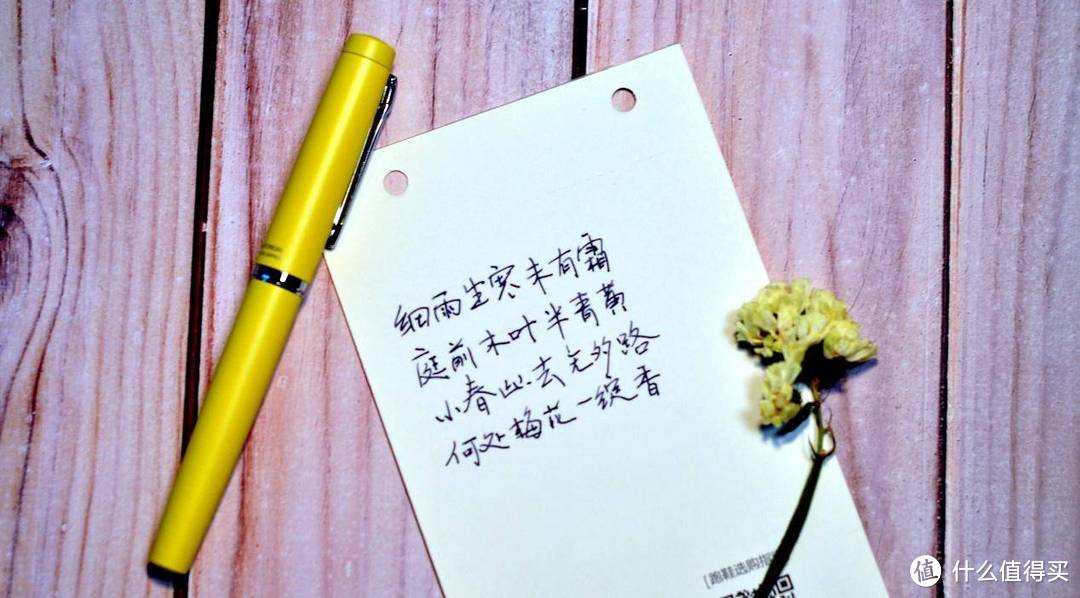 细雨生寒未有霜
庭前木叶半青黄
小春此去无多路
何处梅花一绽香
「跑鞋选购指
值 什么值得买